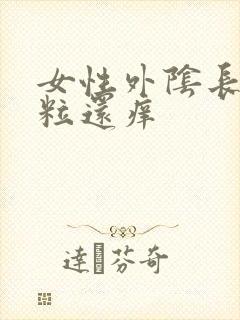 女性外陰長
粒還痒
達�芬奇